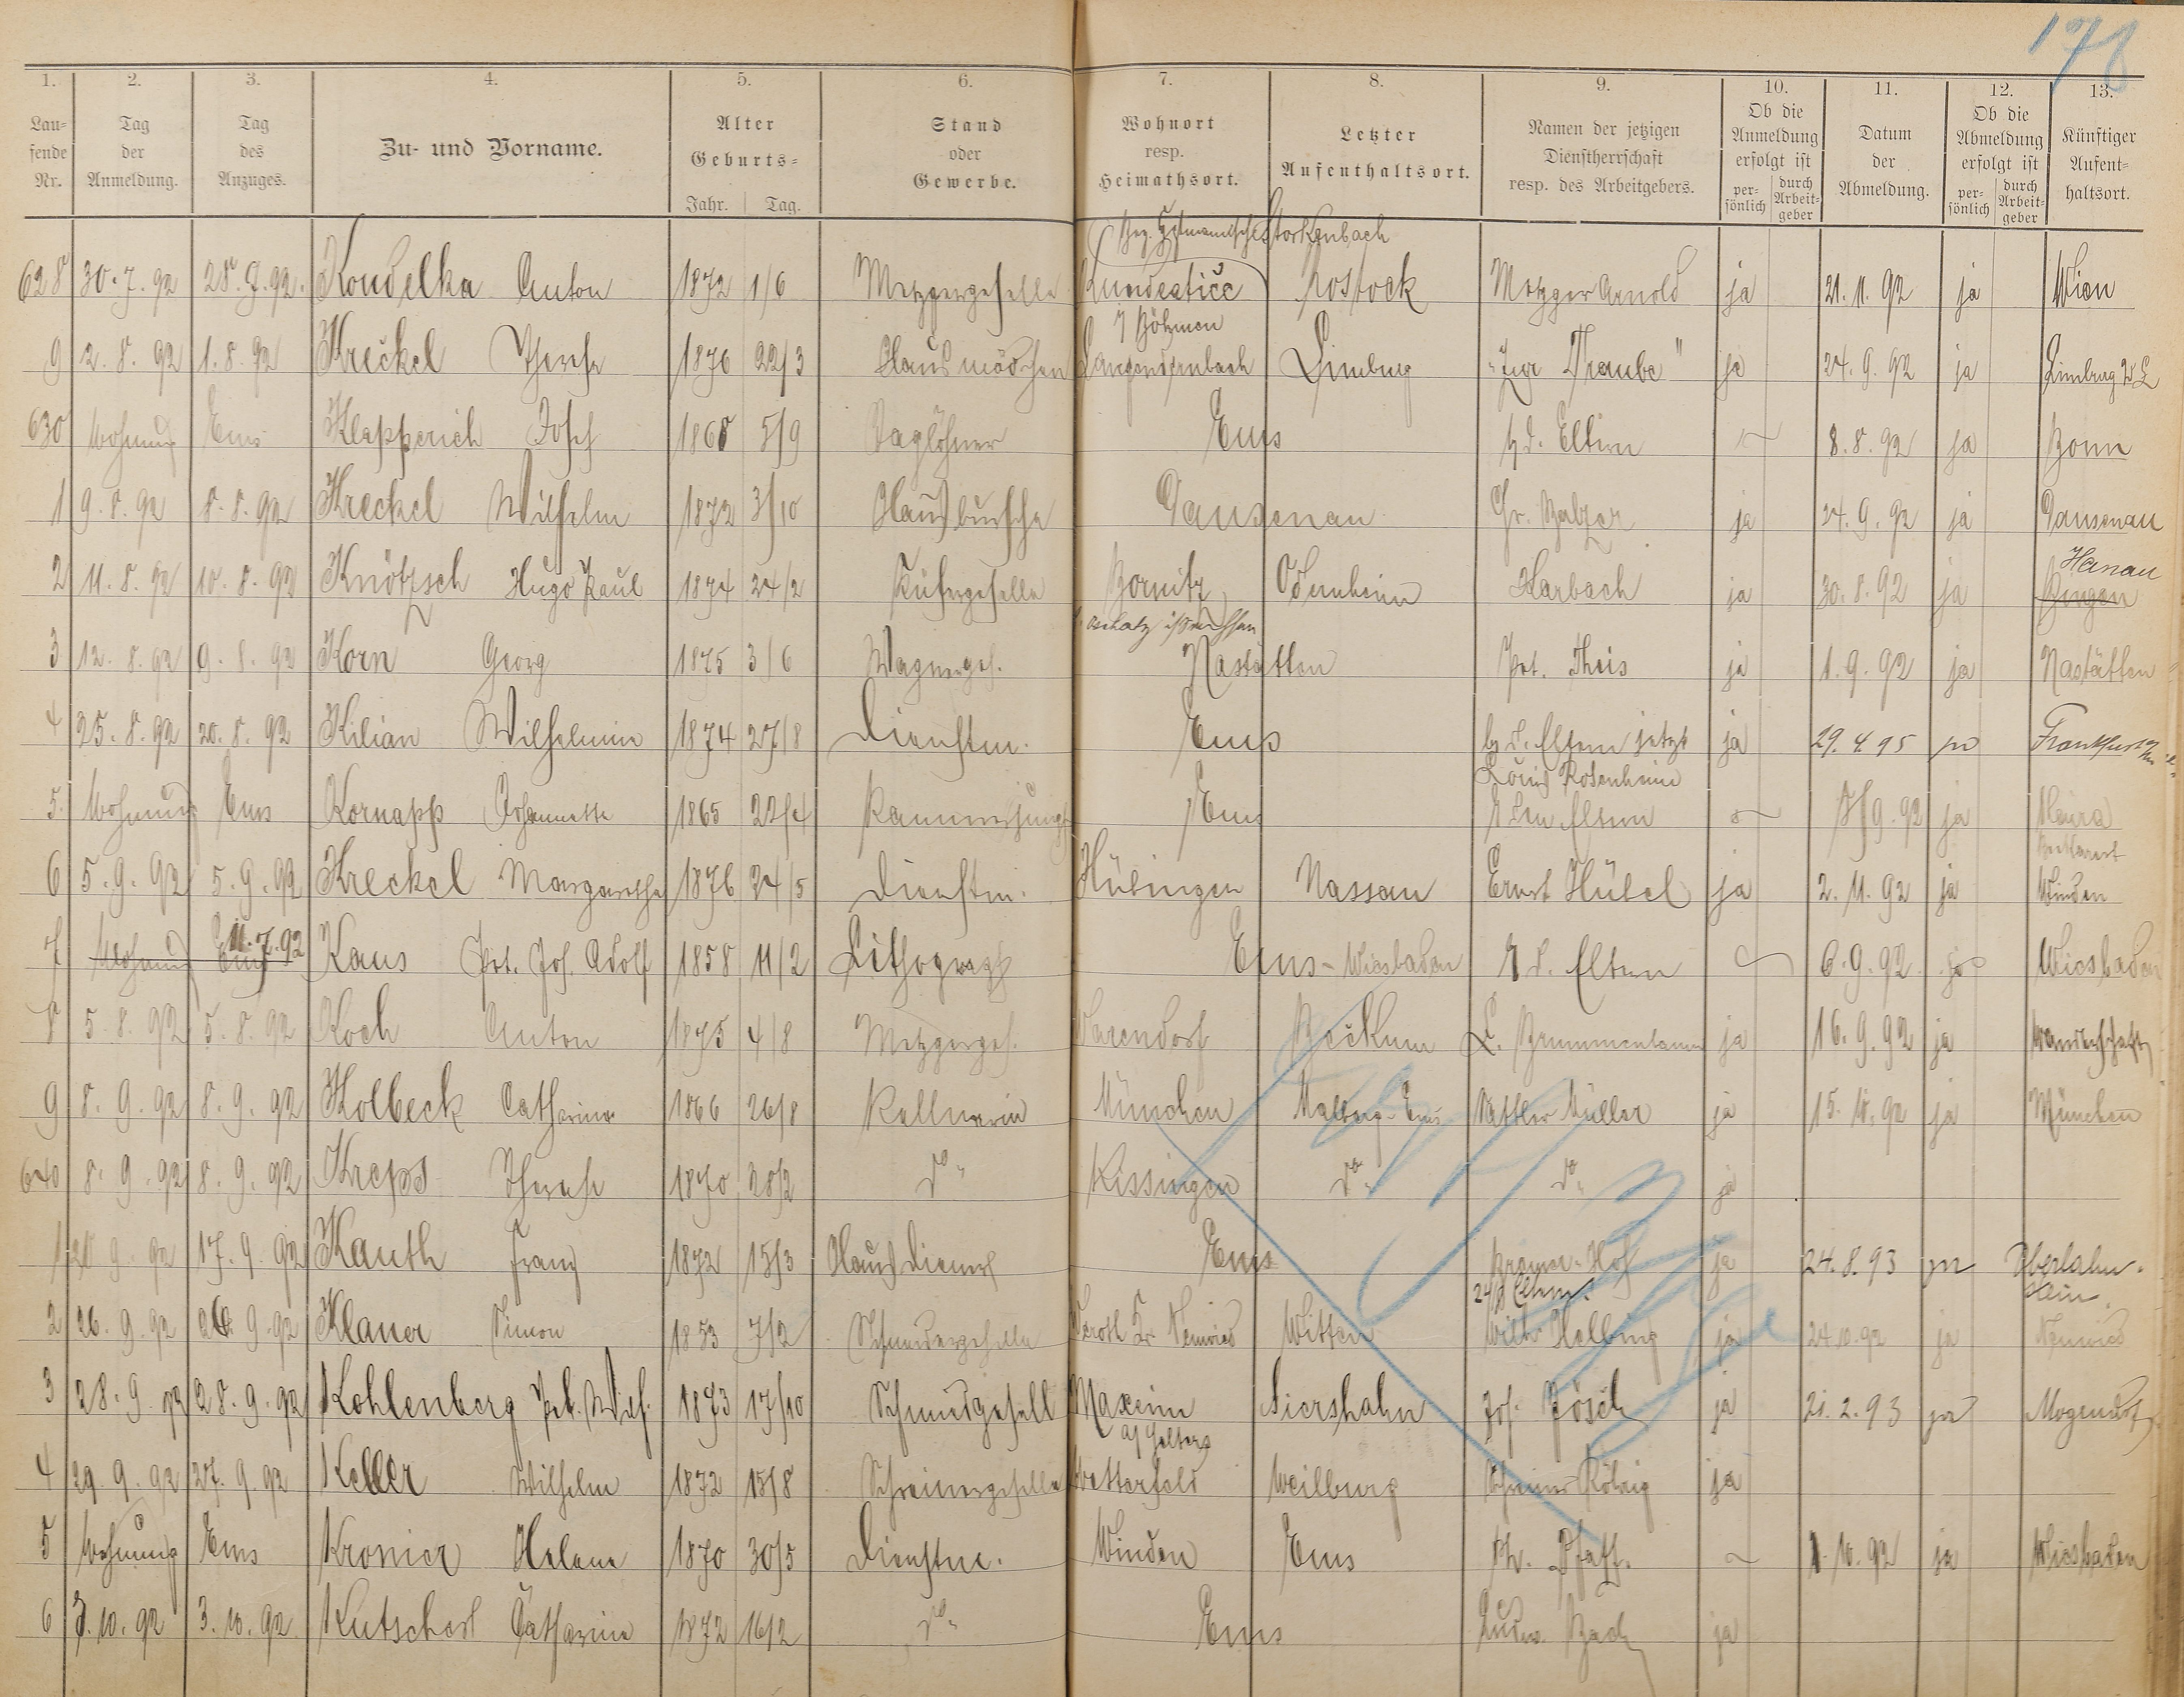 178
1. 2. 3. 4. 5. 6. 7. 8. 9. 10. 11. 12. 13.
Lau-
fende
Nr.
Tag
der
Anmeldung.
Tag
des
Anzuges.
Zu- und Vorname.
Alter
Geburts-
Jahr. Tag.
Stand
oder
Gewerbe.
Wohnort
resp.
Heimathsort.
Letzter
Aufenthaltsort.
Namen der jetzigen
Dienstherrschaft
resp. des Arbeitgebers.
Ob die
Anmeldung
erfolgt ist
per-
sönlich
durch
Arbeit-
geber
Datum
der
Abmeldung.
Ob die
Abmeldung
erfolgt ist
per-
sönlich
durch
Arbeit-
geber
Künftiger
Aufent-
haltsort.
Starkenbach
628 30.7.92 28.7.92. Koudelka Anton 1872 1/6 Metzgergeselle Rostock Metzger Arnold ja 21.11.92 ja Wien
Böhmen
9 2.8.92 1.8.92 Kreckel Therese 1876 22/3 Hausmädchen Langendernbach Limburg "Zur Traube" ja 24.9.92 ja Limburg
630 Wohnung Ems Klapperich Josef 1868 5/9 Taglöhner Ems b d. Eltern 8.8.92 ja Bonn
1 9.8.92 8.8.92 Kreckel Wilhelm 1872 3/10 Hausbursche Dausenau Gr. Balzer ja 24.9.92 ja Dausenau
Hanau
2 11.8.92 10.8.92 Knötzsch Hugo Paul 1874 24/2 Küfergeselle Bornitz Odernheim Harbach ja 30.8.92 ja Bingen
Oschatz i/Sachsen
3 12.8.92 9.8.92 Korn Georg 1875 3/6 Wagnerges. Nastätten Pet. Theis ja 1.9.92 ja Nastätten
4 25.8.92 20.8.92 Kilian Wilhelmine 1874 27/8 Dienstm. Ems b d. Eltern jetzt ja 29.4.95 ja Frankfurt
Louis Rosenheim
5. Wohnung Ems Kornapp Johannette 1865 22/4 Kammerjungf Ems b den Eltern 9.92 ja
6 5.9.92 5.9.92 Kreckel Margarethe 1876 24/5 Dienstm. Hübingen Nassau Ernst Hübel ja 2.11.92 ja Winden
11.7.92
7 Wohnung Ems Kaus Pet. Jos. Adolf 1858 11/2 Lithograph Ems-Wiesbaden b d. Eltern 6.9.92 ja Wiesbaden
8 5.8.92 5.8.92 Koch Anton 1875 4/8 Metzgerges. Warendorf Beckum L. Brummenbaum ja 16.9.92 ja Wanderschaft
9 8.9.92 8.9.92 Kolbeck Catharina 1866 26/8 Kellnerin München Malberg-Ems Müller ja 15.10.92 ja München
640 8.9.92 8.9.92 Kreps Therese 1870 28/2 do Kissingen do do ja
1 20.9.92 17.9.92 Kauth Franz 1872 15/3 Hausdiener Ems Bremer-Hof ja 24.8.93 ja Oberlahn-
stein.
24/8 Eltern.
2 26.9.92 26.9.92 Klauer Simon 1853 7/2 Schneidergeselle Neuwied Witten Wilh. Helbing ja 24.10.92 ja Neuwied
3 28.9.92 28.9.92 Kohlenberg Pet. Wilh. 1873 17/10 Schmiedgesell Maxsein Siershahn Jos. Pösch ja 21.2.93 ja Mogendorf
a/ Selters
4 29.9.92 27.9.92 Keller Wilhelm 1872 15/8 Schreinergeselle Wetterfeld Weilburg Schreiner Röhrig ja
5 Wohnung Ems Kronier Helene 1870 30/5 Dienstm. Winden Ems Ph. Pfaff. 1.10.92 ja Wiesbaden
6 3.10.92 3.10.92 Kutscherl Catharina 1872 16/2 do Ems Ludw. Bach ja